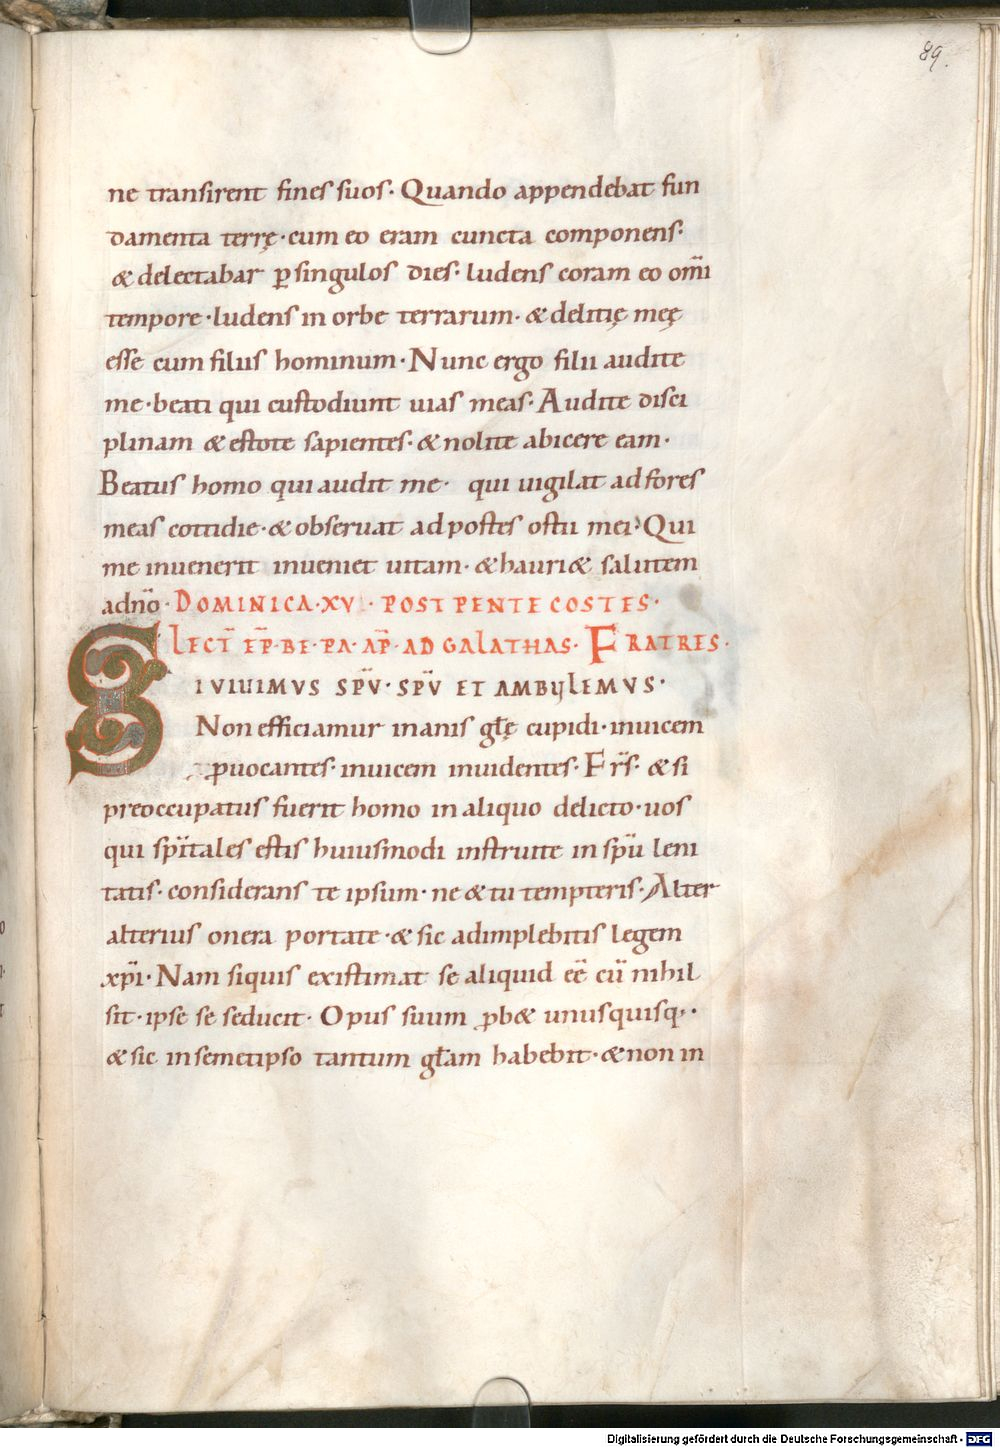 89.
ne transirent fines suos· Quando appendebat fun
damenta terrę· cum eo eram cuncta componens·
& delectabar ꝑ singulos dies· ludens coram eo om̅i
tempore· ludens in orbe terrarum· & delitię meę
esse cum filiis hominum· Nunc ergo filii audite
me· beati qui custodiunt uias meas· Audite disci
plinam & estote sapientes· & nolite abicere eam·
Beatus homo qui audit me· qui uigilat ad fores
meas cottidie· & obseruat ad postes ostii mei· Qui
me inuenerit inueniet uitam· & hauri& salutem
a dn̅o· DOMINICA·XV· POST PENTECOSTES·
LECT̅ EP̅·BE·PA·AP̅·AD GALATHAS· FRATRES·
SI VIUIMVS SPV̅· SPV̅ ET AMBVLEMVS·
Non efficiamur inanis gl̅ę cupidi· inuicem
ꝓuocantes· inuicem inuidentes· Fr̅s· & si
preoccupatus fuerit homo in aliquo delicto· uos
qui sp̅itales estis huiusmodi instruite in spu̅ leni
tatis· considerans te ipsum· ne & tu tempteris· Alter
alterius onera portate· & sic adimplebitis legem
xp̅i· Nam siquis existimat se aliquid ee̅ cu̅ nihil
sit· ipse se seducit· Opus suum ꝓb& unusquisq;·
& sic in semetipso tantum gl̅am habebit· & non in
Digitalisierung gefördert durch die Deutsche Forschungsgemeinschaft - DFG